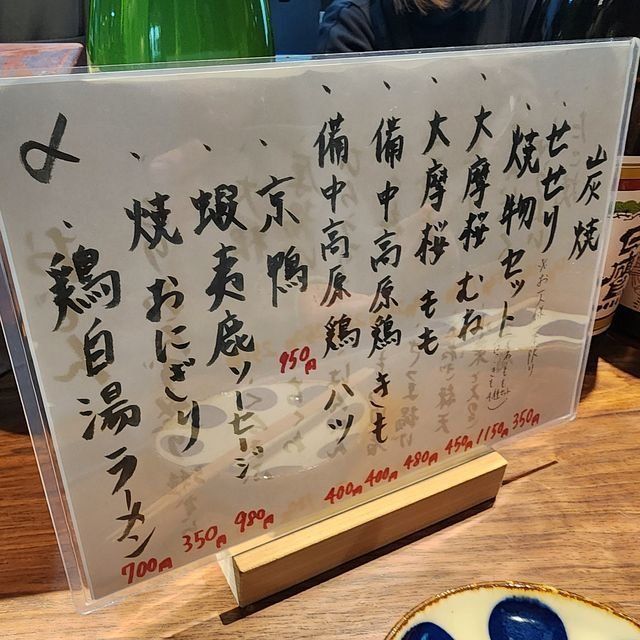 炭焼
、せせり 350円
、焼物セット 1150円
、大摩桜 むね 450円
、大摩桜 もも 480円
、備中高原鶏 きも 400円
、備中高原鶏 ハツ 400円
、京鴨 950円
、蝦夷鹿ソーセージ 980円
、焼おにぎり 350円
〆
、鶏白湯ラーメン 700円